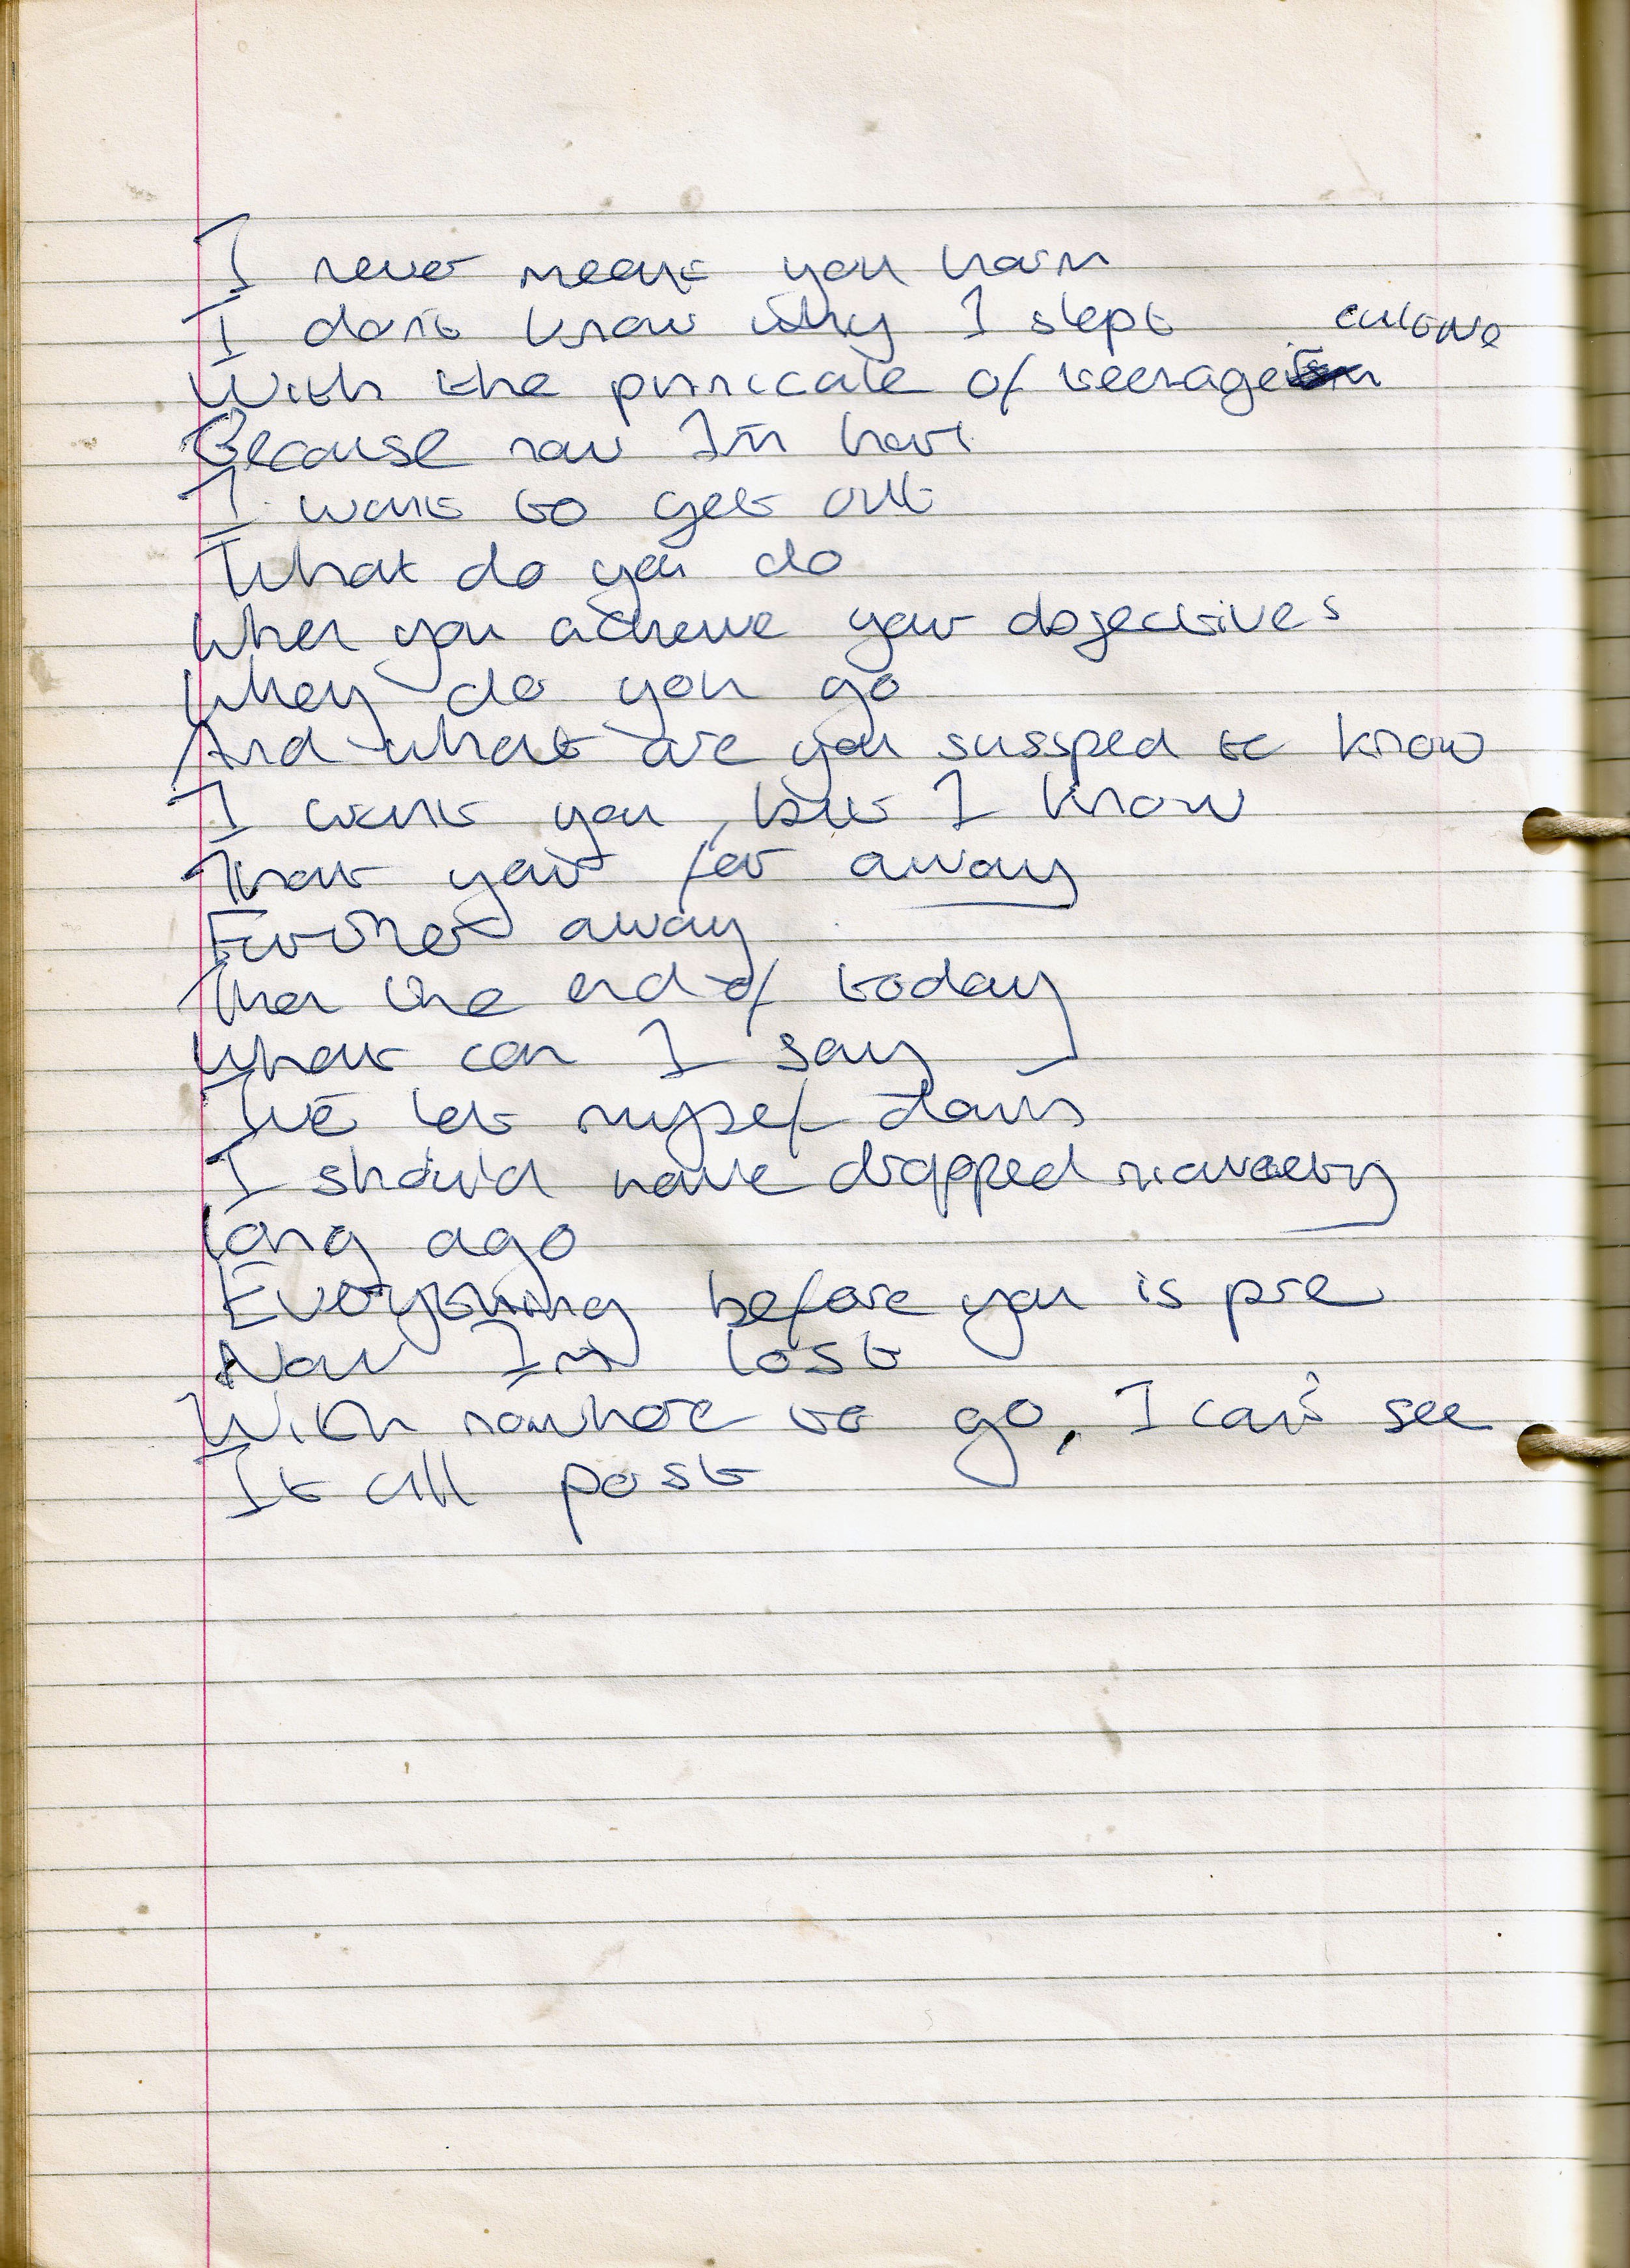 I never meant you harm
I don't know why I slept
culture
With the pinnicale of teenage
Because now I'm hurt
I want to get out
What do you do
When you achieve your objectives
do you go
And what are you sussped to know
I want you, but I know
That your far away
Further away
Then the end of today
What can I say
I've let myself down
I should have dropped
long ago
Everything before you is pre
Now I'm lost
With nowhere to go, I can't see
It all past